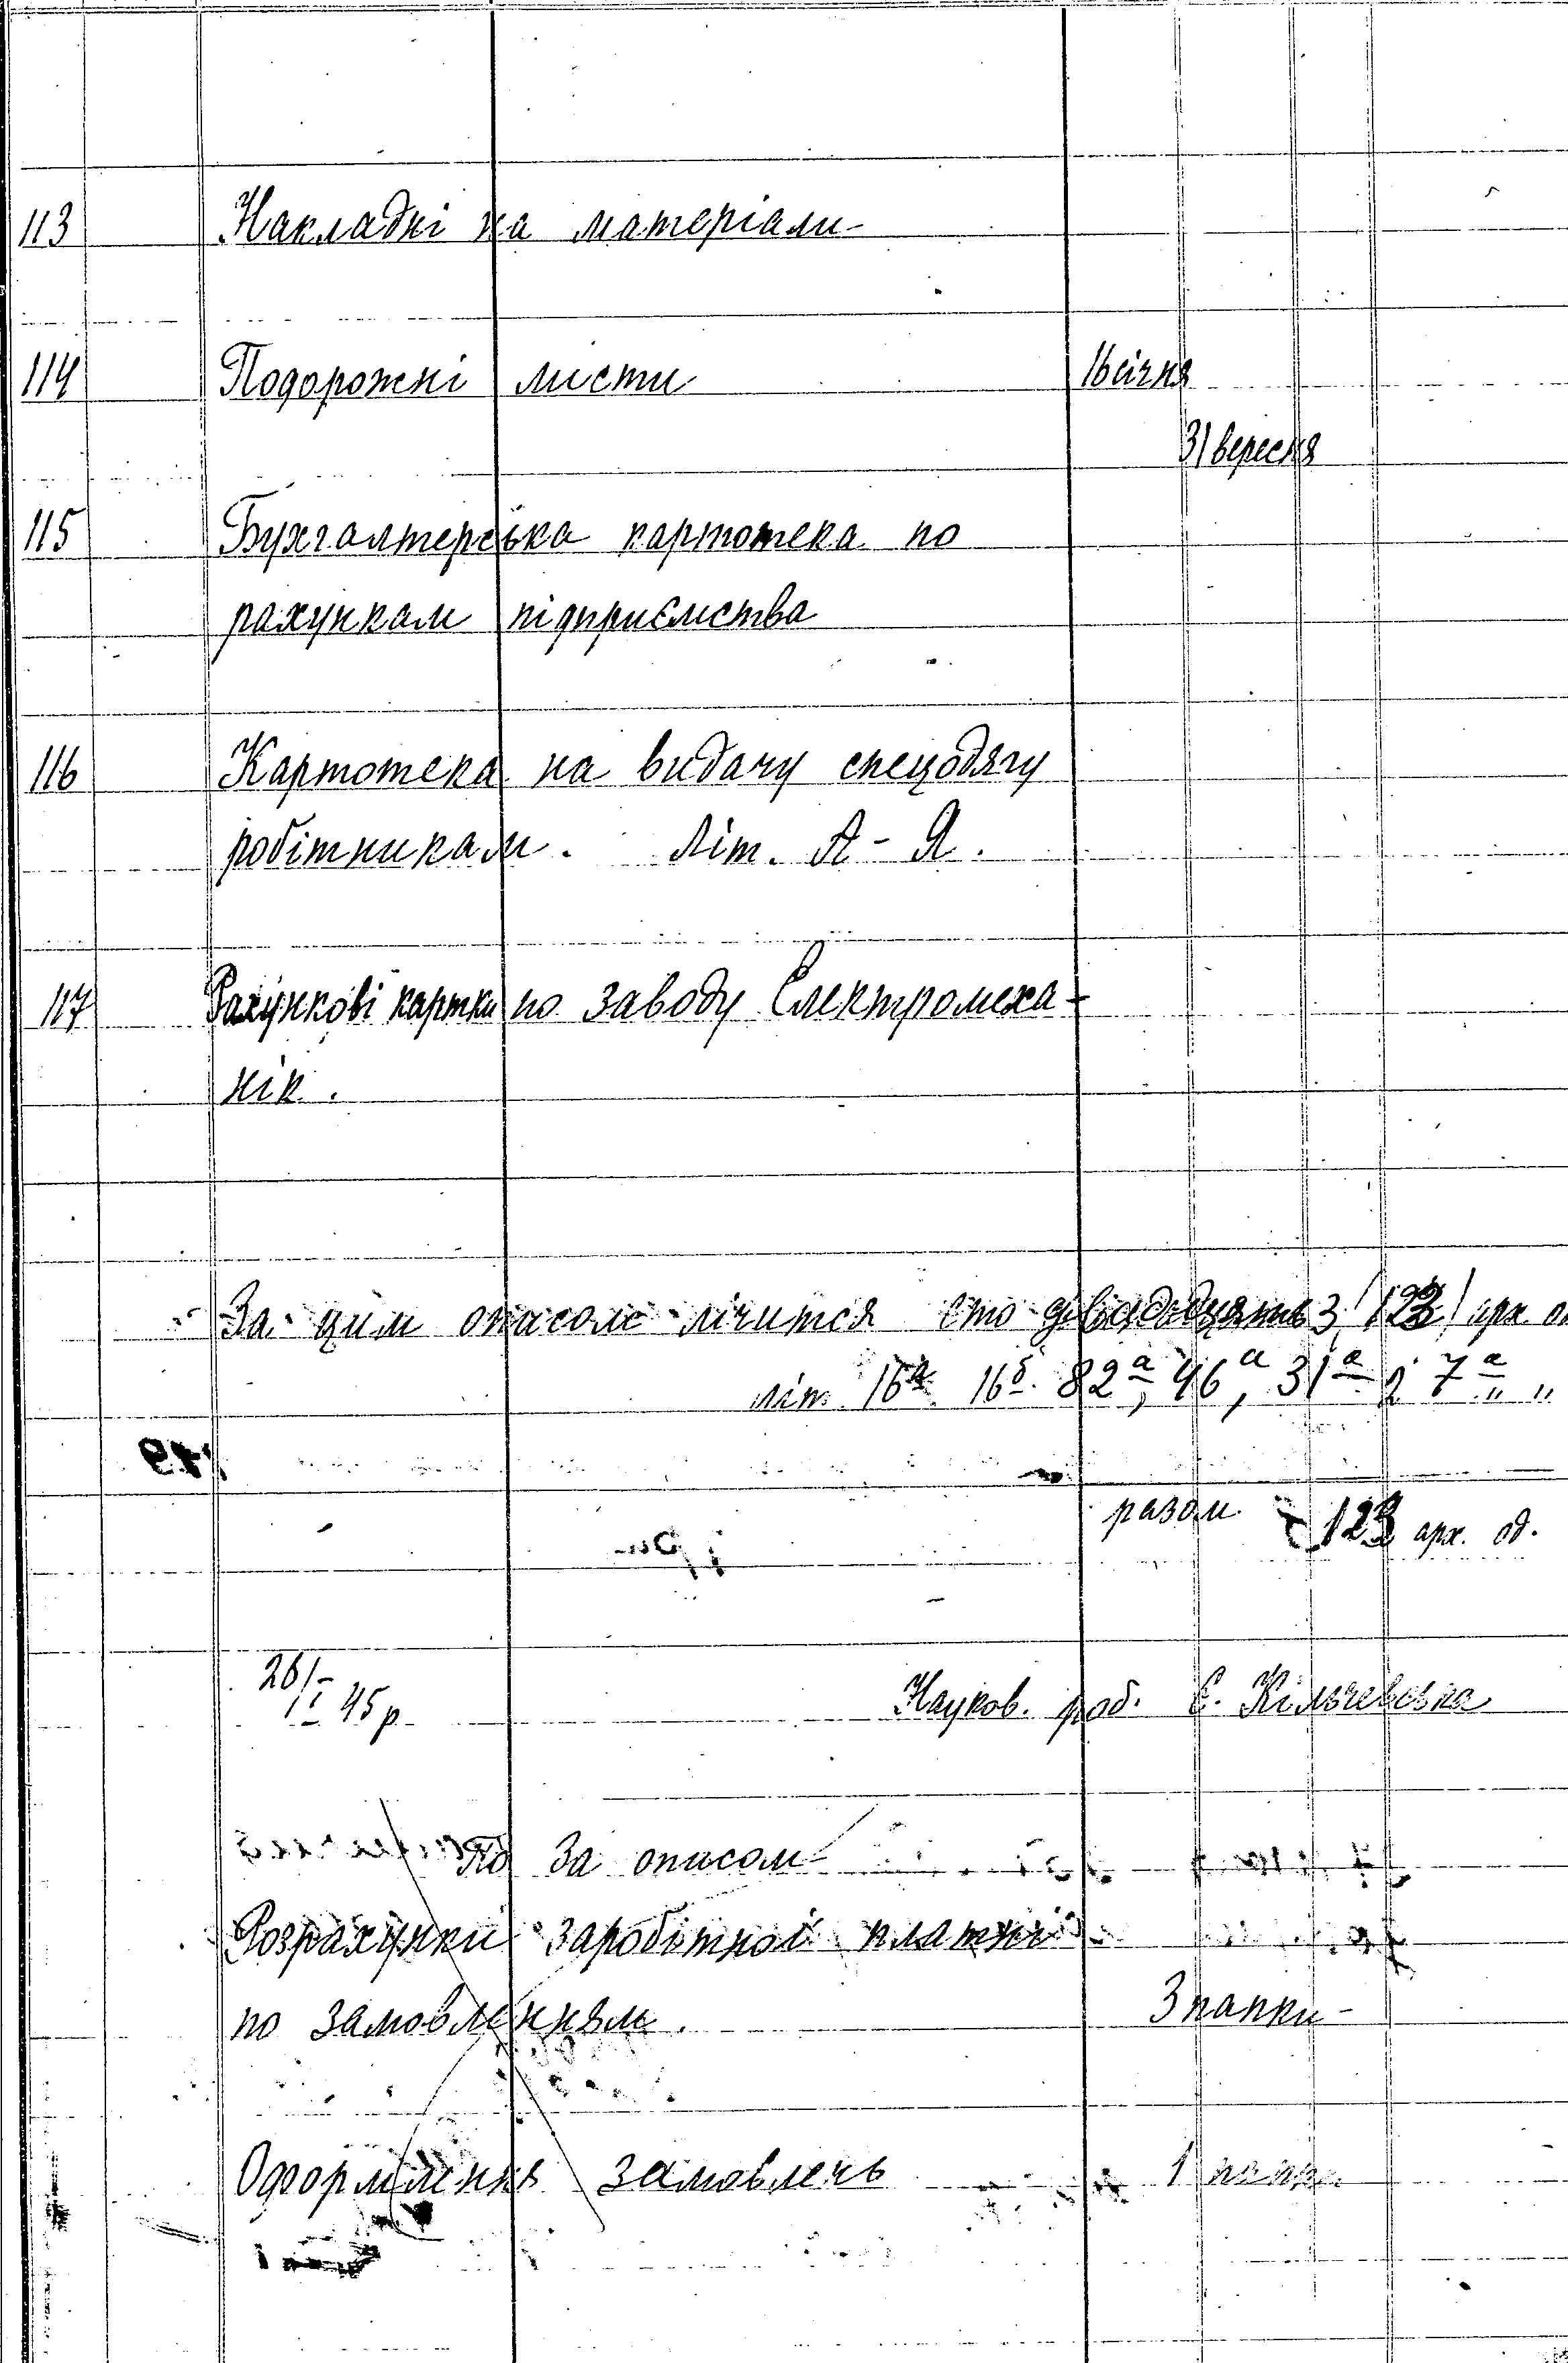 113 Накладні на матеріали
114 Подорожні листи 16 січня
31 вересня
115 Бухгалтерська картотека по
рахункам підприємства
116 Картотека на видачу спецодягу
робітникам. Літ. А - Я.
117 Рахункові картки по заводу Електромеха-
нік.
За цим описом лічится сто двадцять 3 /123/ арх. од
літ. 16а 16б. 82а, 46а, 31а і 7а " "
разом 123 арх. од.
26/-
II 45 р. Науков. роб. Є. Кільчевська
По За описом
Розрахунки заробітної платні
по замовленням. 3 папки -
Оформлення замовлень 1 папка